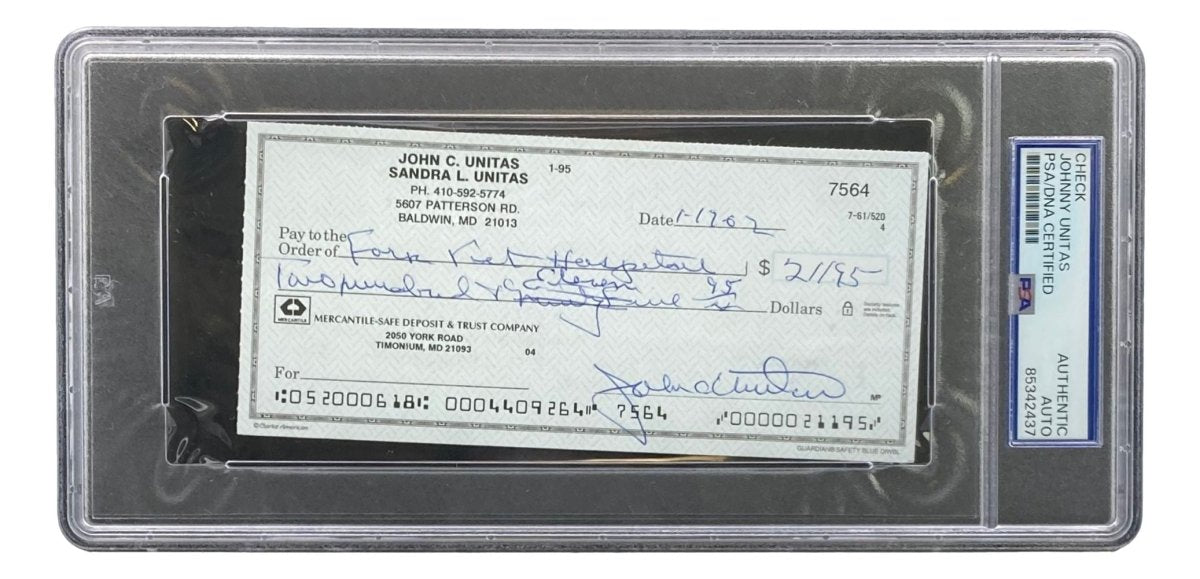 JOHN C. UNITAS 1-95
SANDRA L. UNITAS
PH. 410-592-5774
5607 PATTERSON RD.
BALDWIN, MD 21013
7564
Date 1-17 02
7-61/520
4
Pay to the
Order of Fork Vet Hospital $ 211 95
Eleven
Two hundred & 95 Dollars
Security features
are included.
Details on back.
MERCANTILE
MERCANTILE-SAFE DEPOSIT & TRUST COMPANY
2050 YORK ROAD
TIMONIUM, MD 21093 04
For
John C Unitas
MP
⑆052000618⑆ 0004409264⑈ 7564 ⑈0000021195⑈
© Clarke American
GUARDIAN® SAFETY BLUE DRWBL
CHECK
JOHNNY UNITAS
PSA/DNA CERTIFIED
PSA
AUTHENTIC
AUTO
85342437